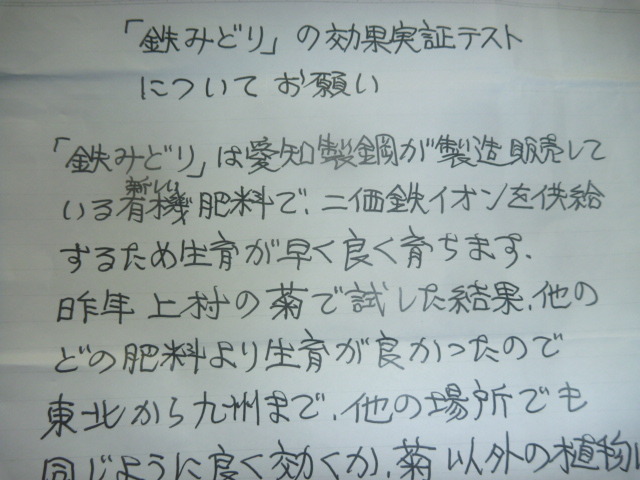 「鉄みどり」の効果実証テスト
についてお願い
「鉄みどり」は愛知製鋼が製造販売して
新しい
いる有機肥料で、二価鉄イオンを供給
するため生育が早く良く育ちます.
昨年上村の菊で試した結果、他の
どの肥料より生育が良かったので
東北から九州まで、他の場所でも
同じように良く効くか、菊以外の植物に